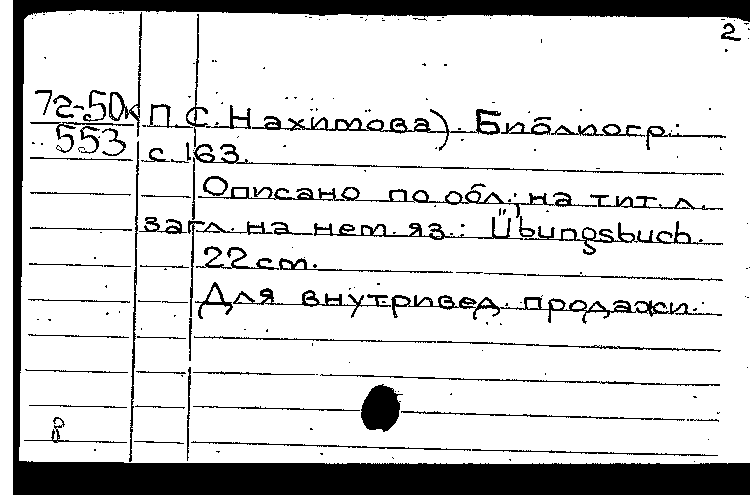 2
7г-50к П.С. Нахимова). Библиогр.:
553 с 163.
Описано по обл.; на тит. л.
загл. на нем. яз.: Übungsbuch.
22 cm.
Для внутривед. продажи.
8